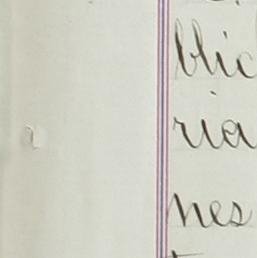 blic
ria
nes